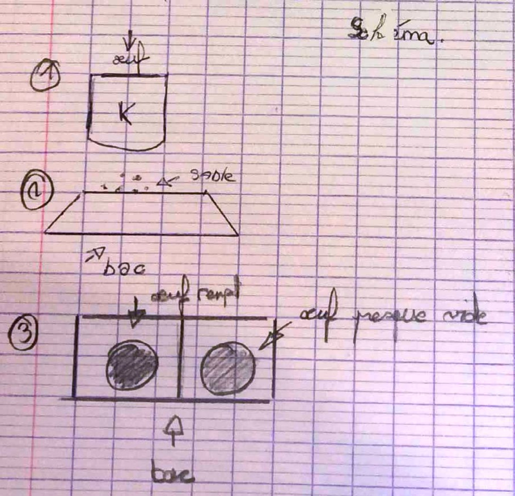 Schéma.
œuf
① K
② sable
bac
œuf rempl
③ œuf presque vide
bac